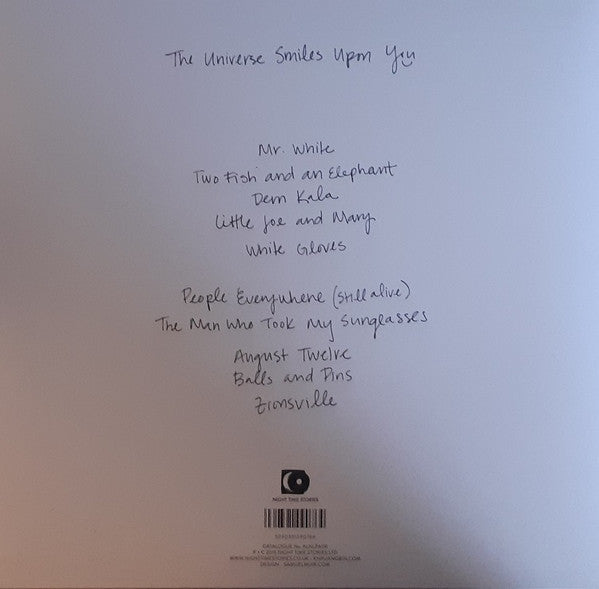 The Universe Smiles Upon You
Mr. White
Two Fish and an Elephant
Dern Kala
Little Joe and Mary
White Gloves
People Everywhere (Still alive)
The Man Who Took My Sunglasses
August Twelve
Balls and Pins
Zionsville
NIGHT TIME STORIES
CATALOGUE No. ALNLP40R
P + C 2015 NIGHT TIME STORIES LTD
WWW.NIGHTTIMESTORIES.CO.UK - KHRUANGBIN.COM
DESIGN - SAMUELMUIR.COM